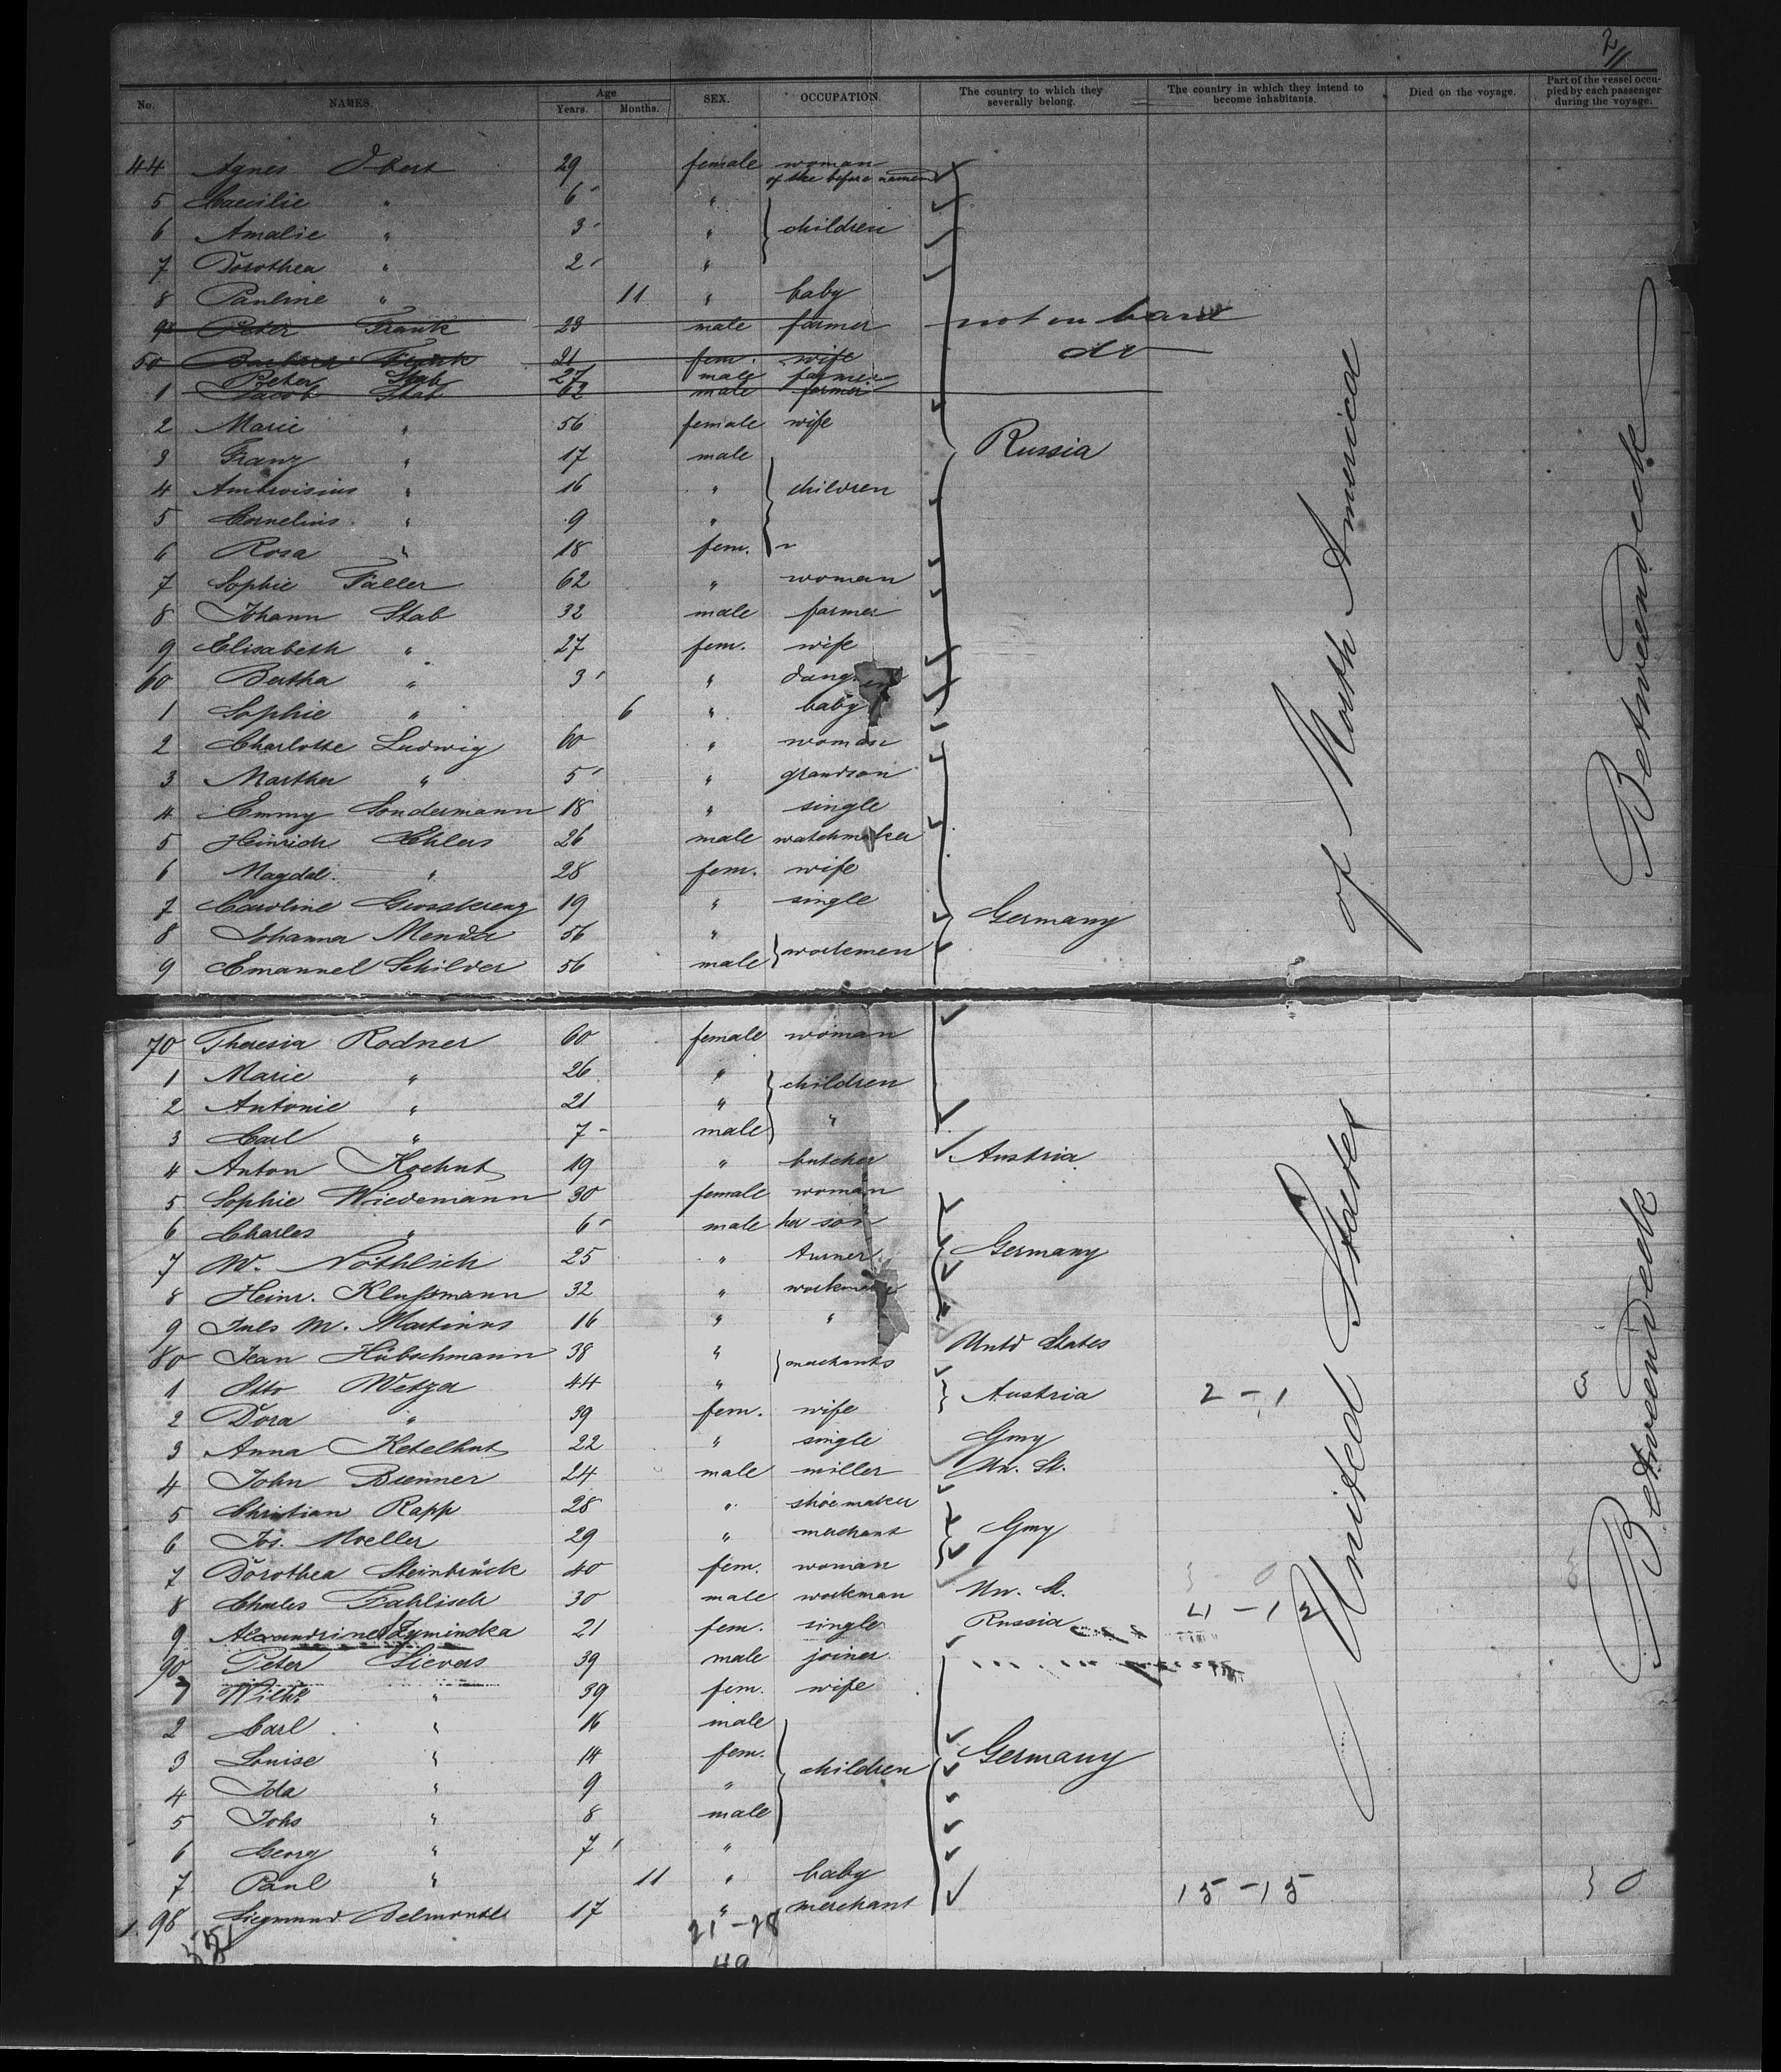 2/11
No. NAMES. Age Years. Months. SEX. OCCUPATION. The country to which they severally belong. The country in which they intend to become inhabitants. Died on the voyage. Part of the vessel occupied by each passenger during the voyage.
44 Agnes Obert 29 female woman of the before named
5 Caecilie " 6 "
6 Amalie " 3 " children
7 Dorothea " 2 "
8 Pauline " 11 " baby
9 Peter Frank 23 male farmer not on board
50 Barbara Frank 21 fem. wife do
Peter Stab 27 male farmer
1 Jacob Stab 62 male farmer
2 Marie " 56 female wife
3 Franz " 17 male Russia
4 Ambrosius " 16 " children
5 Cornelius " 9 "
6 Rosa " 18 fem. "
7 Sophie Faller 62 " woman
8 Johann Stab 32 male farmer
9 Elisabeth " 27 fem. wife
60 Bertha " 3 "
1 Sophie " 6 " baby
2 Charlotte Ludwig 60 " woman
3 Martha " 5 " grandson
4 Emmy Sondermann 18 " single
5 Heinrich Ehlers 26 male watchmaker
6 Magdal. " 28 fem. wife
7 Caroline 19 " single Germany
8 Johanna 56 " workmen
9 Emanuel Schilder 56 male
70 Theresia Rodner 60 female woman
1 Marie " 26 " children
2 Antonie " 21 "
3 Carl " 7 male "
4 Anton Kochut 19 " butcher Austria
5 Sophie Wiedemann 30 female woman
6 Charles " 6 male her son
7 W. Nöthlich 25 " turner Germany
8 Heinr. Klussmann 32 " workman
9 Juls M. Martinus 16 " "
80 Jean Hübschmann 38 " merchants Untd States
1 Otto Wetza 44 " Austria 2-1 3
2 Dora " 39 fem. wife
3 Anna Ketelhut 22 " single Gmy
4 John Brenner 24 male miller Un. St.
5 Christian Rapp 28 " shoemaker
6 Jos. Moeller 29 " merchant Gmy
7 Dorothea Steinbrück 40 fem. woman
8 Charles Fahlisch 30 male workman Un. St.
9 Alexandrine Zyminska 21 fem. single Russia
90 Peter Sievers 39 male joiner
1 Wilhe " 39 fem. wife
2 Carl " 16 male
3 Louise " 14 fem. children Germany
4 Ida " 9 "
5 Johs " 8 male
6 Georg " 7 "
7 Paul " 11 " baby 15-15
1.98 Siegmund Belmonte 17 " merchant
21-28
49
United States
of North America
Betweendeck
Betweendeck